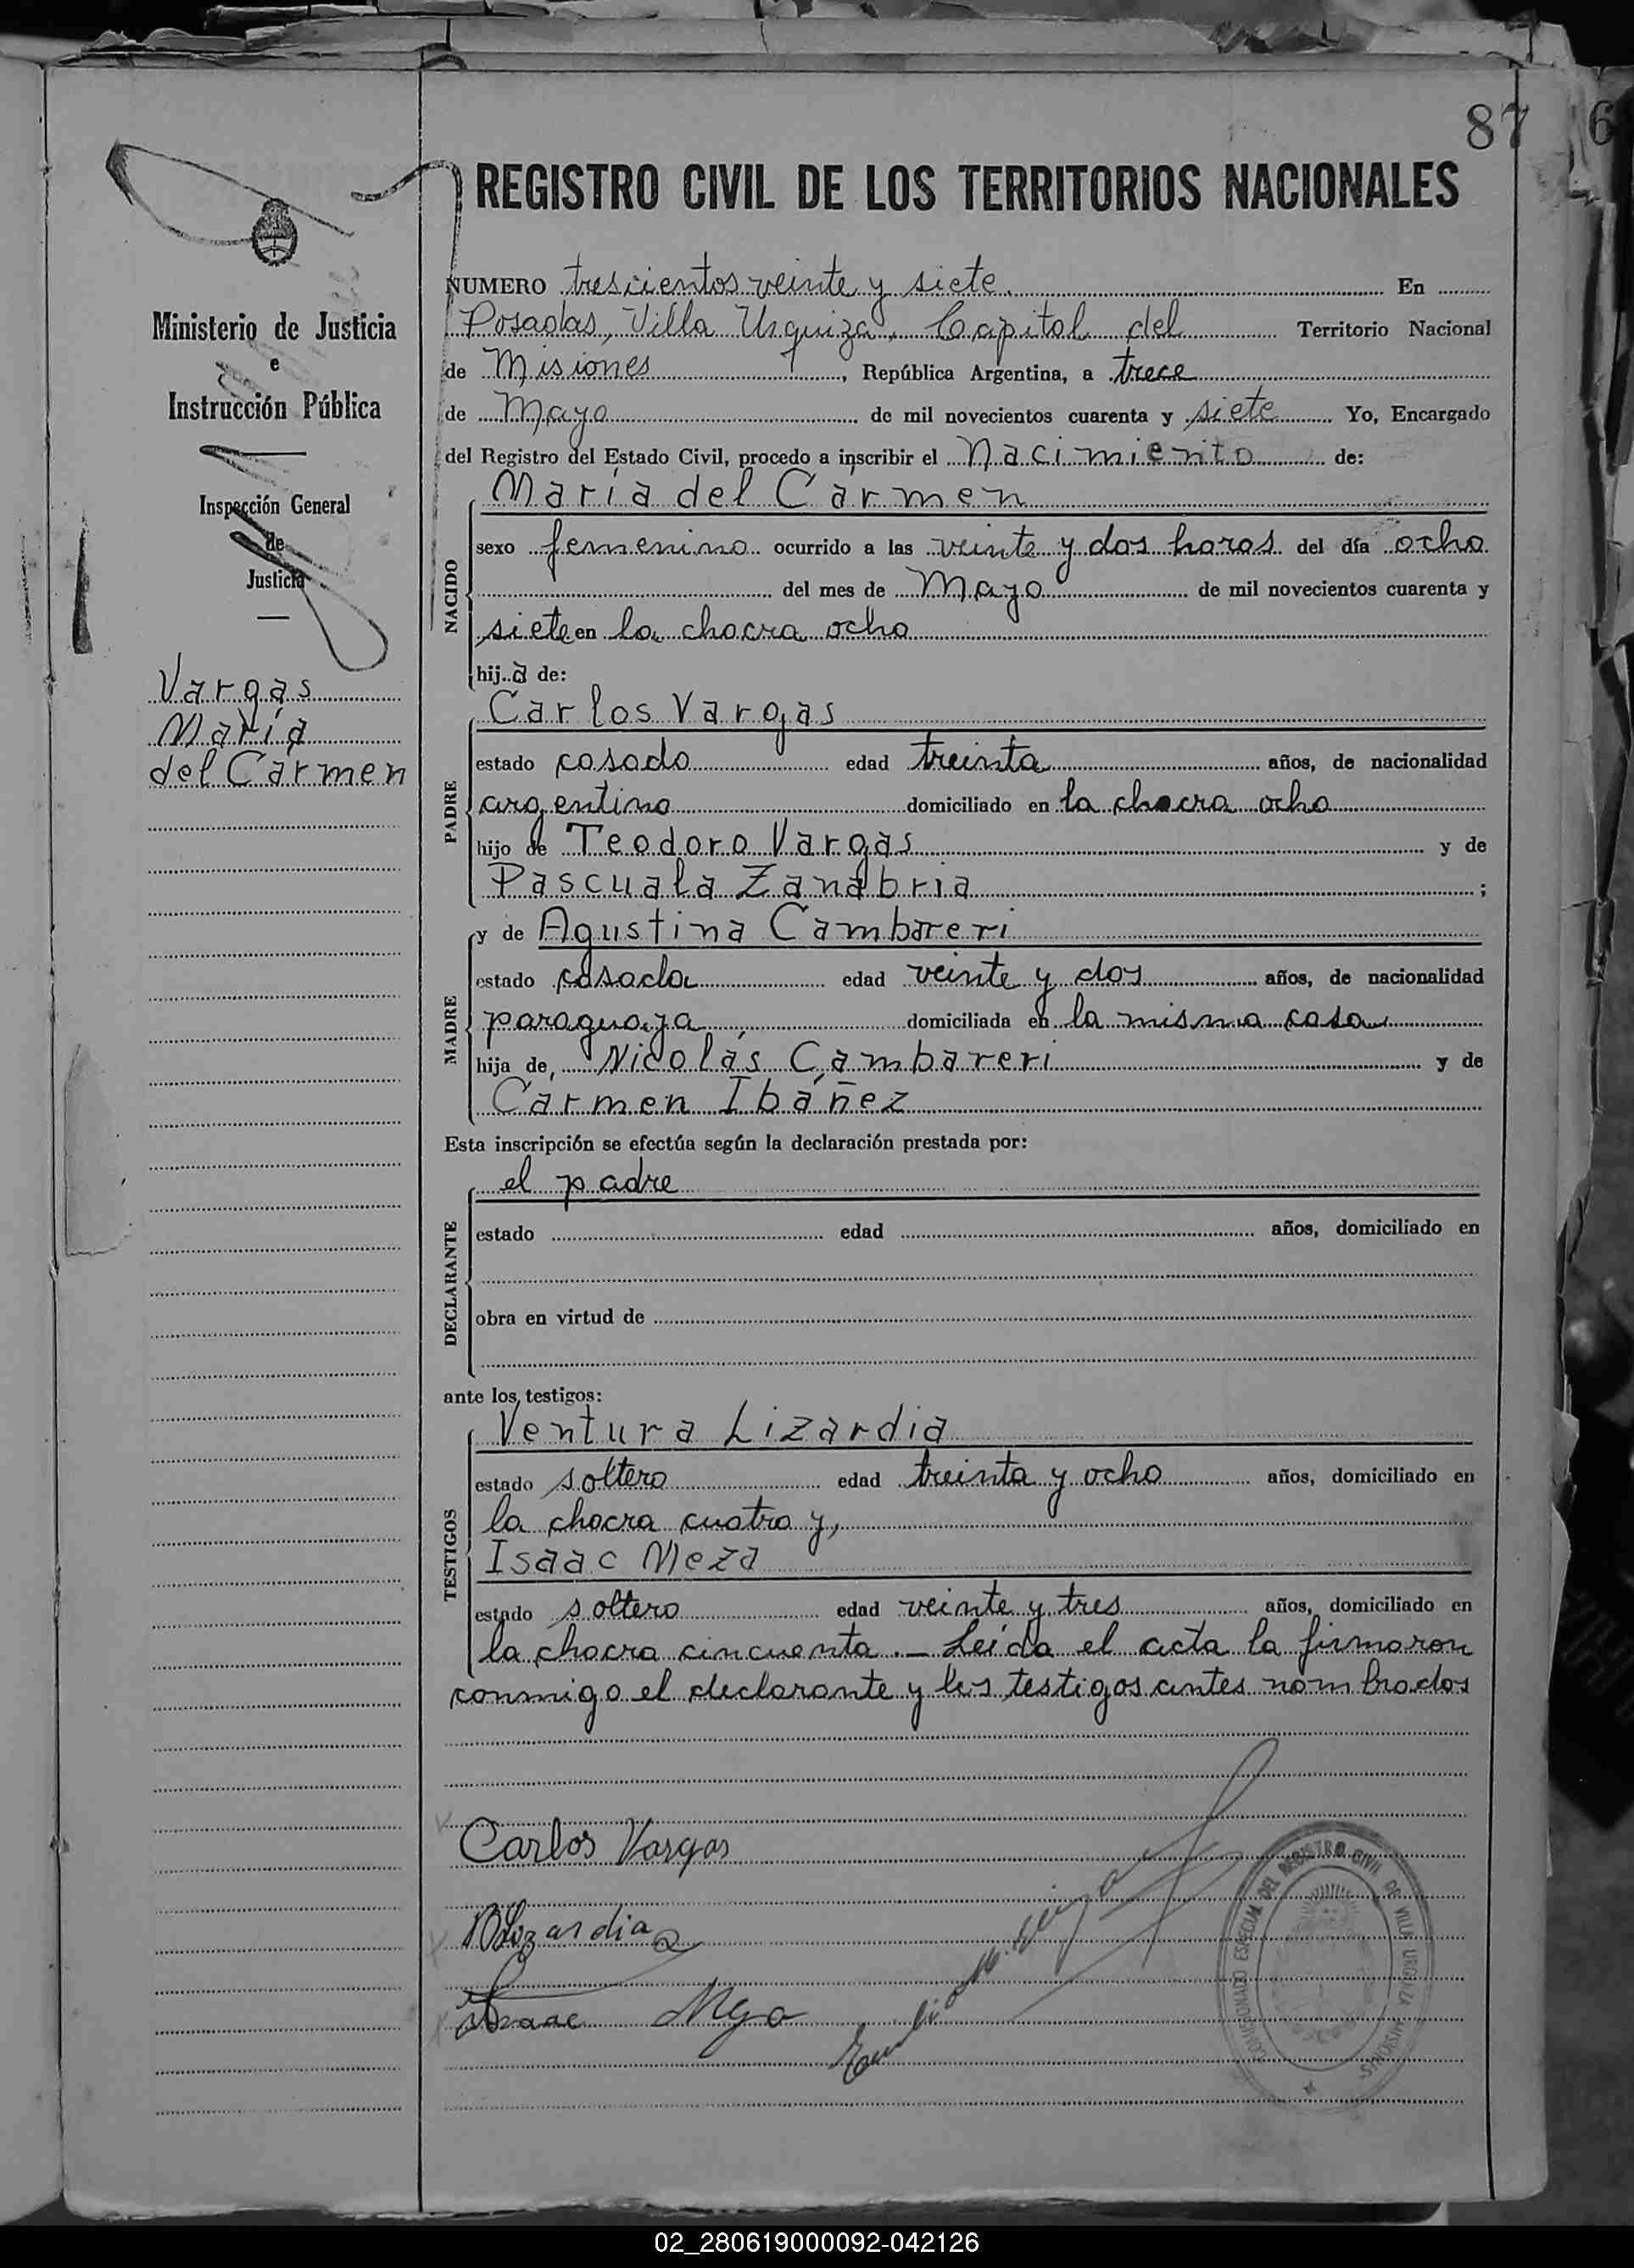 87
6
REGISTRO CIVIL DE LOS TERRITORIOS NACIONALES
Ministerio de Justicia
e
Instrucción Pública
Inspección General
de
Justicia
Vargas
María
del Carmen
NUMERO trescientos veinte y siete. En
Posadas, Villa Urquiza, Capital del Territorio Nacional
de Misiones, República Argentina, a trece
de Mayo de mil novecientos cuarenta y siete Yo, Encargado
del Registro del Estado Civil, procedo a inscribir el Nacimiento de:
NACIDO
María del Cármen
sexo femenino ocurrido a las veinte y dos horas del día ocho
del mes de Mayo de mil novecientos cuarenta y
siete en la chacra ocho
hija de:
PADRE
Carlos Vargas
estado casado edad treinta años, de nacionalidad
argentino domiciliado en la chacra ocho
hijo de Teodoro Vargas y de
Pascuala Zanabria;
MADRE
y de Agustina Cambareri
estado casada edad veinte y dos años, de nacionalidad
paraguaya domiciliada en la misma casa
hija de, Nicolás Cambareri y de
Cármen Ibáñez
Esta inscripción se efectúa según la declaración prestada por:
DECLARANTE
el padre
estado edad años, domiciliado en
obra en virtud de
ante los testigos:
TESTIGOS
Ventura Lizardia
estado soltero edad treinta y ocho años, domiciliado en
la chacra cuatro y,
Isaac Meza
estado soltero edad veinte y tres años, domiciliado en
la chacra cincuenta.— Leída el acta la firmaron
conmigo el declarante y los testigos antes nombrados
Carlos Vargas
Lizardia
Isaac
COMISIONADO ESPECIAL DEL REGISTRO CIVIL DE VILLA URQUIZA MISIONES
02_280619000092-042126